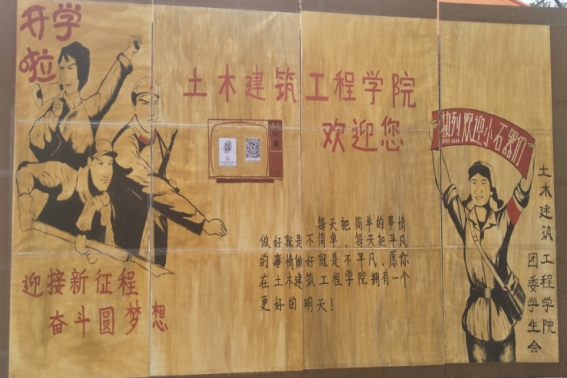 开学
啦
土木建筑工程学院
欢迎您
热烈欢迎小石器们
每天把简单的事情
做好就是不简单,每天把平凡
的事情做好就是不平凡,愿你
在土木建筑工程学院拥有一个
更好的明天!
迎接新征程
奋斗圆梦想
土木建筑工程学院
团委学生会